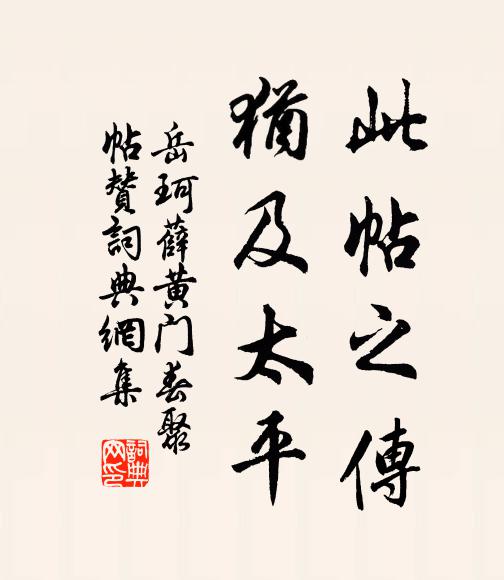 此帖之傳
猶及太平
岳珂薛黄门春聚
帖贊詞典網集
詞典
网印